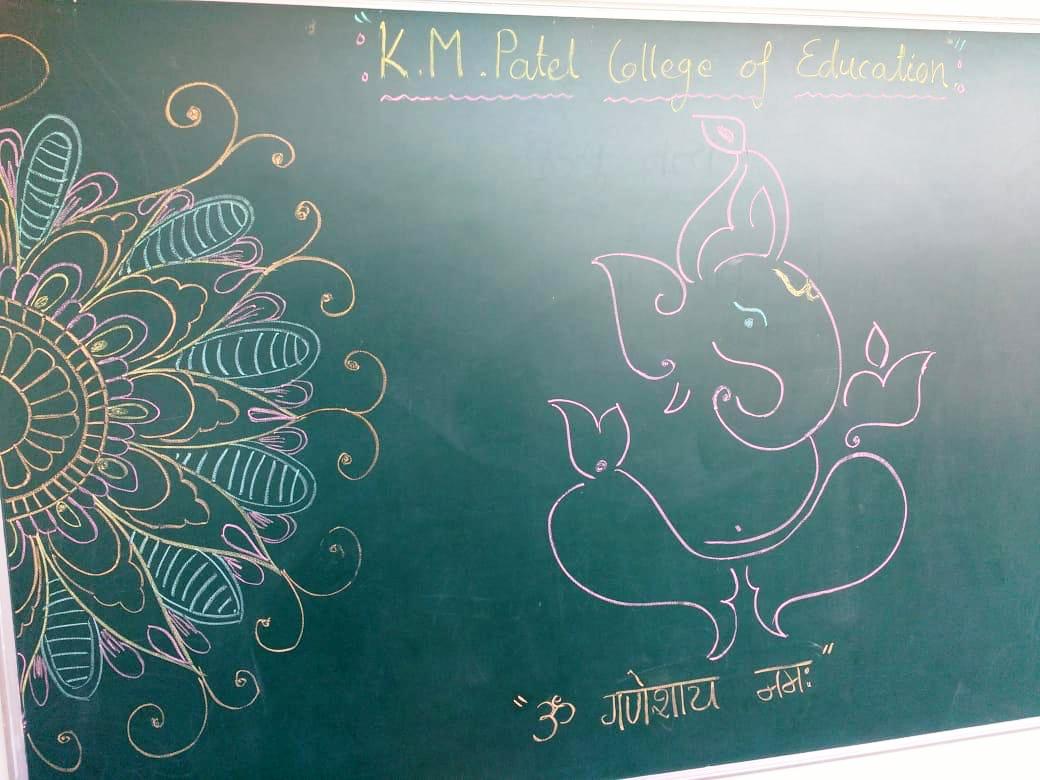 "K.M. Patel College of Education"
"ॐ गणेशाय नमः"